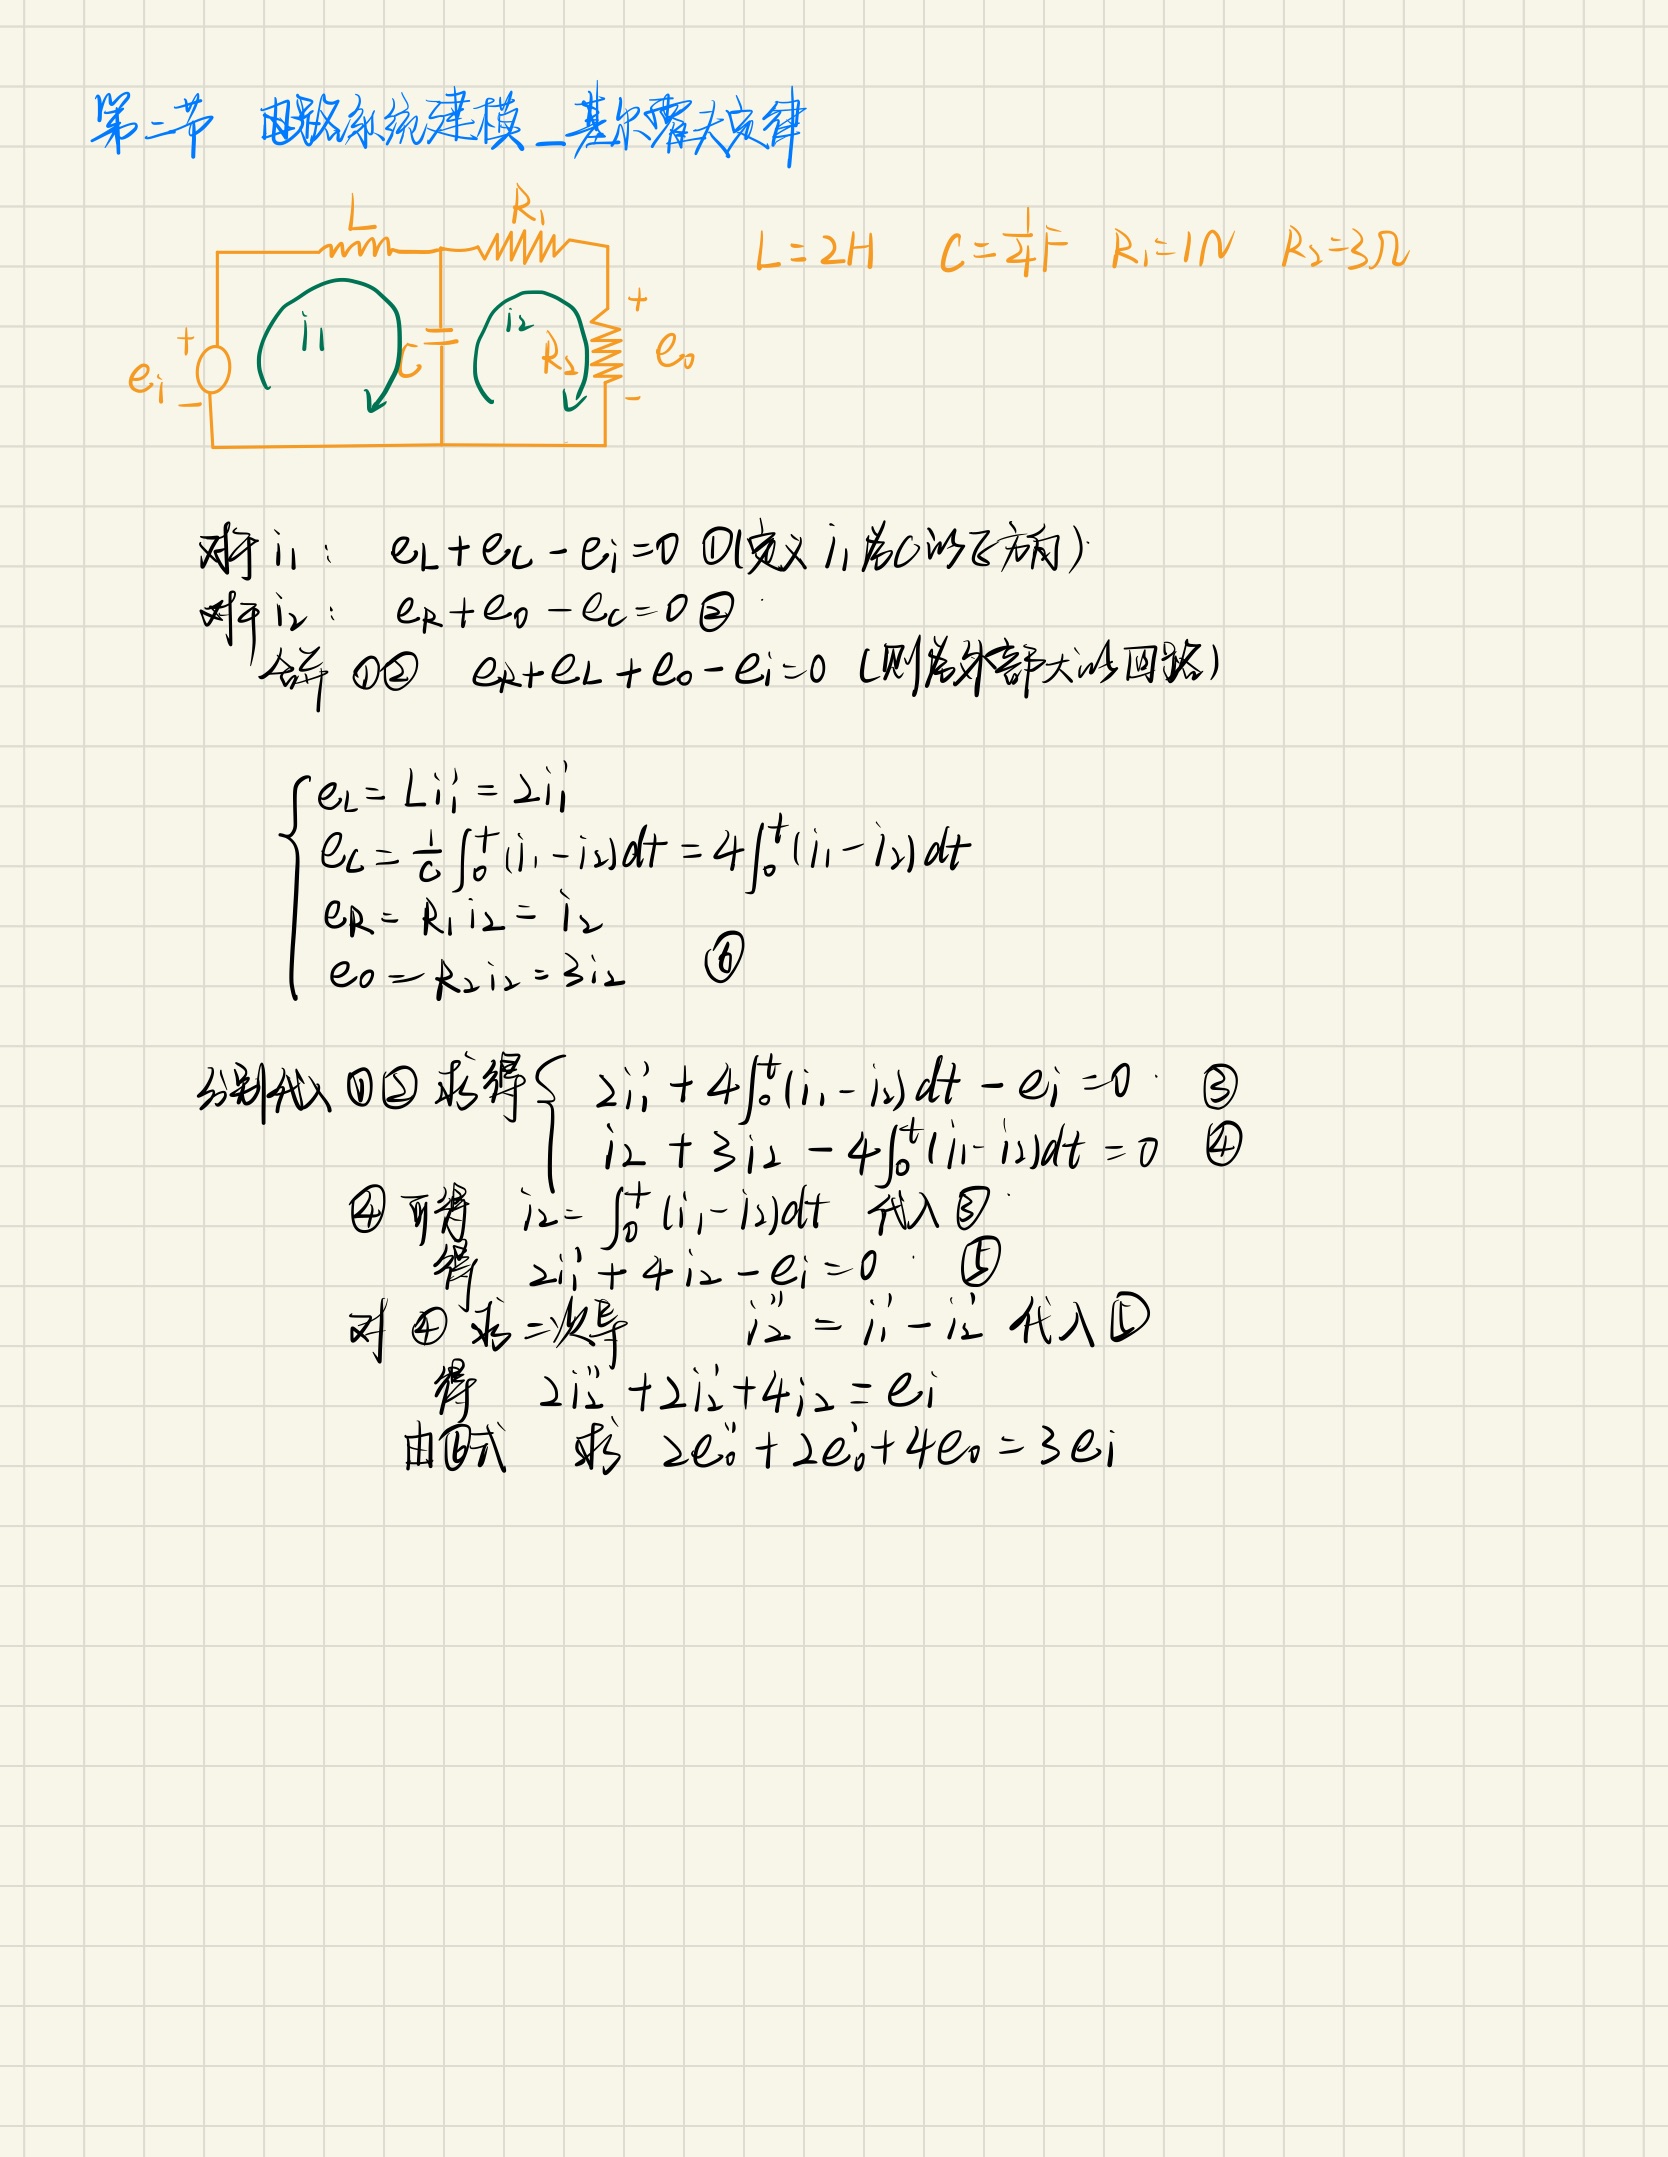 第二节 电路系统建模_基尔霍夫定律
L R₁
L=2H C=¼F R₁=1Ω R₂=3Ω
i₁ i₂
+ +
eᵢ C R₂ e₀
- -
对于 i₁: e_L+e_C-eᵢ=0 ①(定义 i₁为C的正方向)
对于 i₂: e_R+e₀-e_C=0 ②
合并 ①② e_R+e_L+e₀-eᵢ=0 (则为外部大的回路)
e_L=Li₁'=2i₁'
e_C=1/C∫₀ᵗ(i₁-i₂)dt=4∫₀ᵗ(i₁-i₂)dt
e_R=R₁i₂=i₂
e₀=R₂i₂=3i₂ ⑥
分别代入 ①② 求得 { 2i₁'+4∫₀ᵗ(i₁-i₂)dt-eᵢ=0 ③
i₂+3i₂-4∫₀ᵗ(i₁-i₂)dt=0 ④
④ 可得 i₂=∫₀ᵗ(i₁-i₂)dt 代入③
得 2i₁'+4i₂-eᵢ=0 ⑤
对 ④ 求二次导 i₂''=i₁'-i₂' 代入⑤
得 2i₂''+2i₂'+4i₂=eᵢ
由⑥式 求 2e₀''+2e₀'+4e₀=3eᵢ